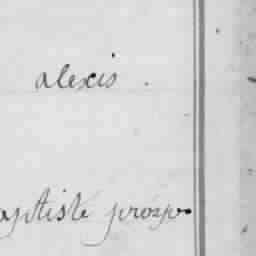 alexis .
aptiste prosp